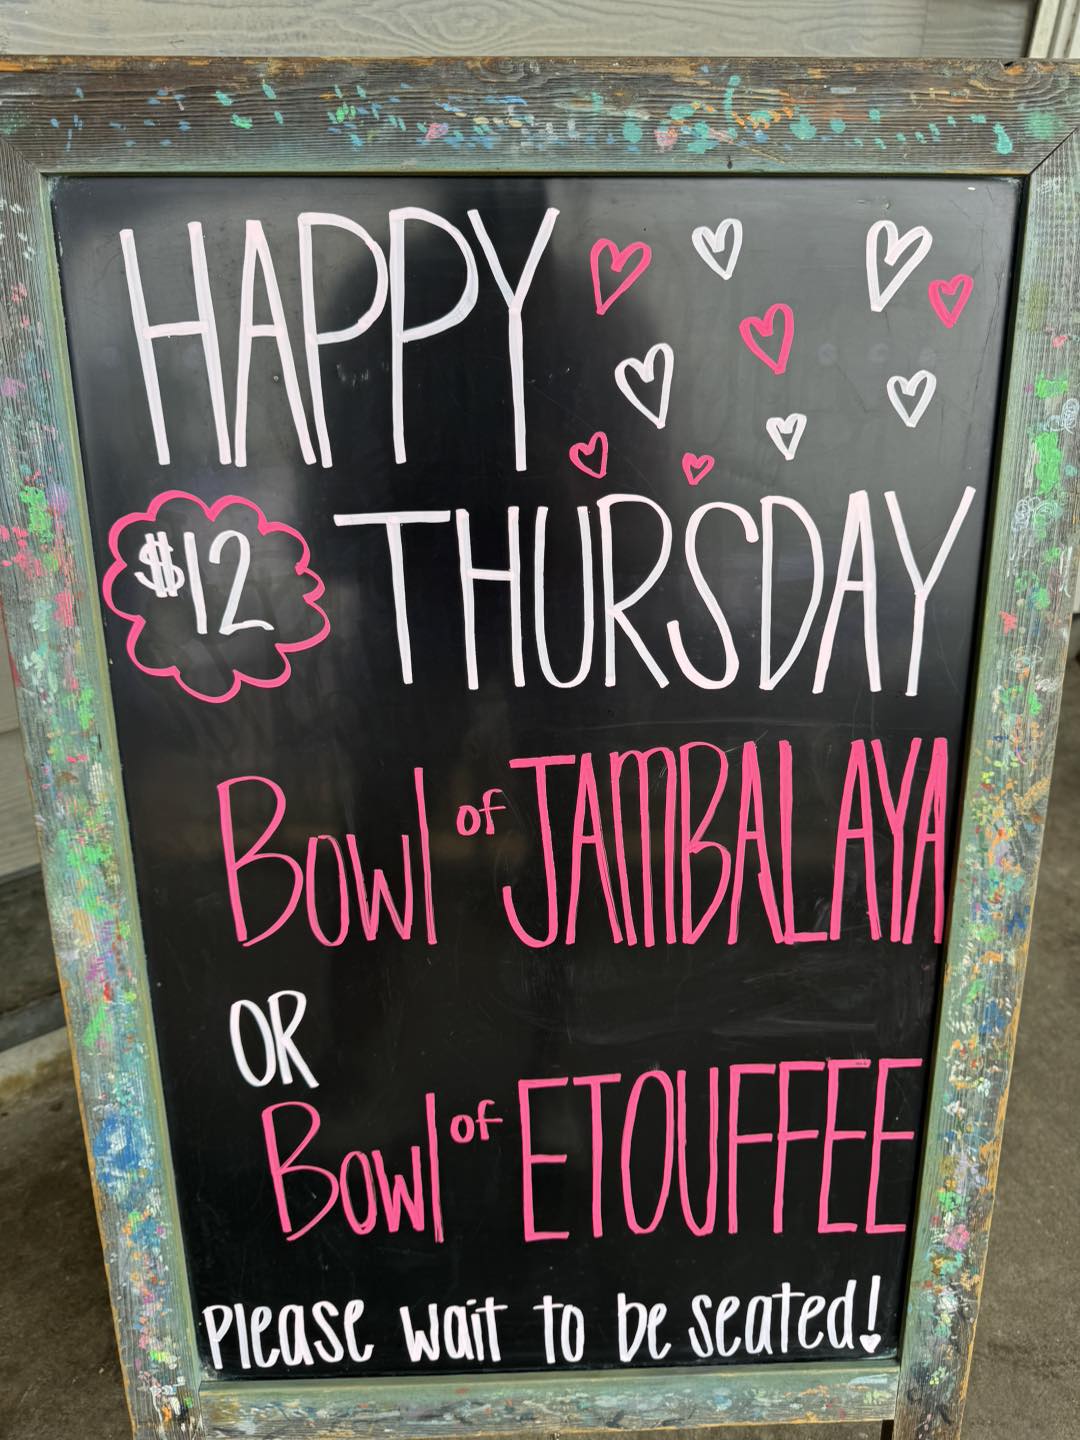 HAPPY
$12 THURSDAY
Bowl of JAMBALAYA
OR
Bowl of ETOUFFEE
Please wait to be seated!